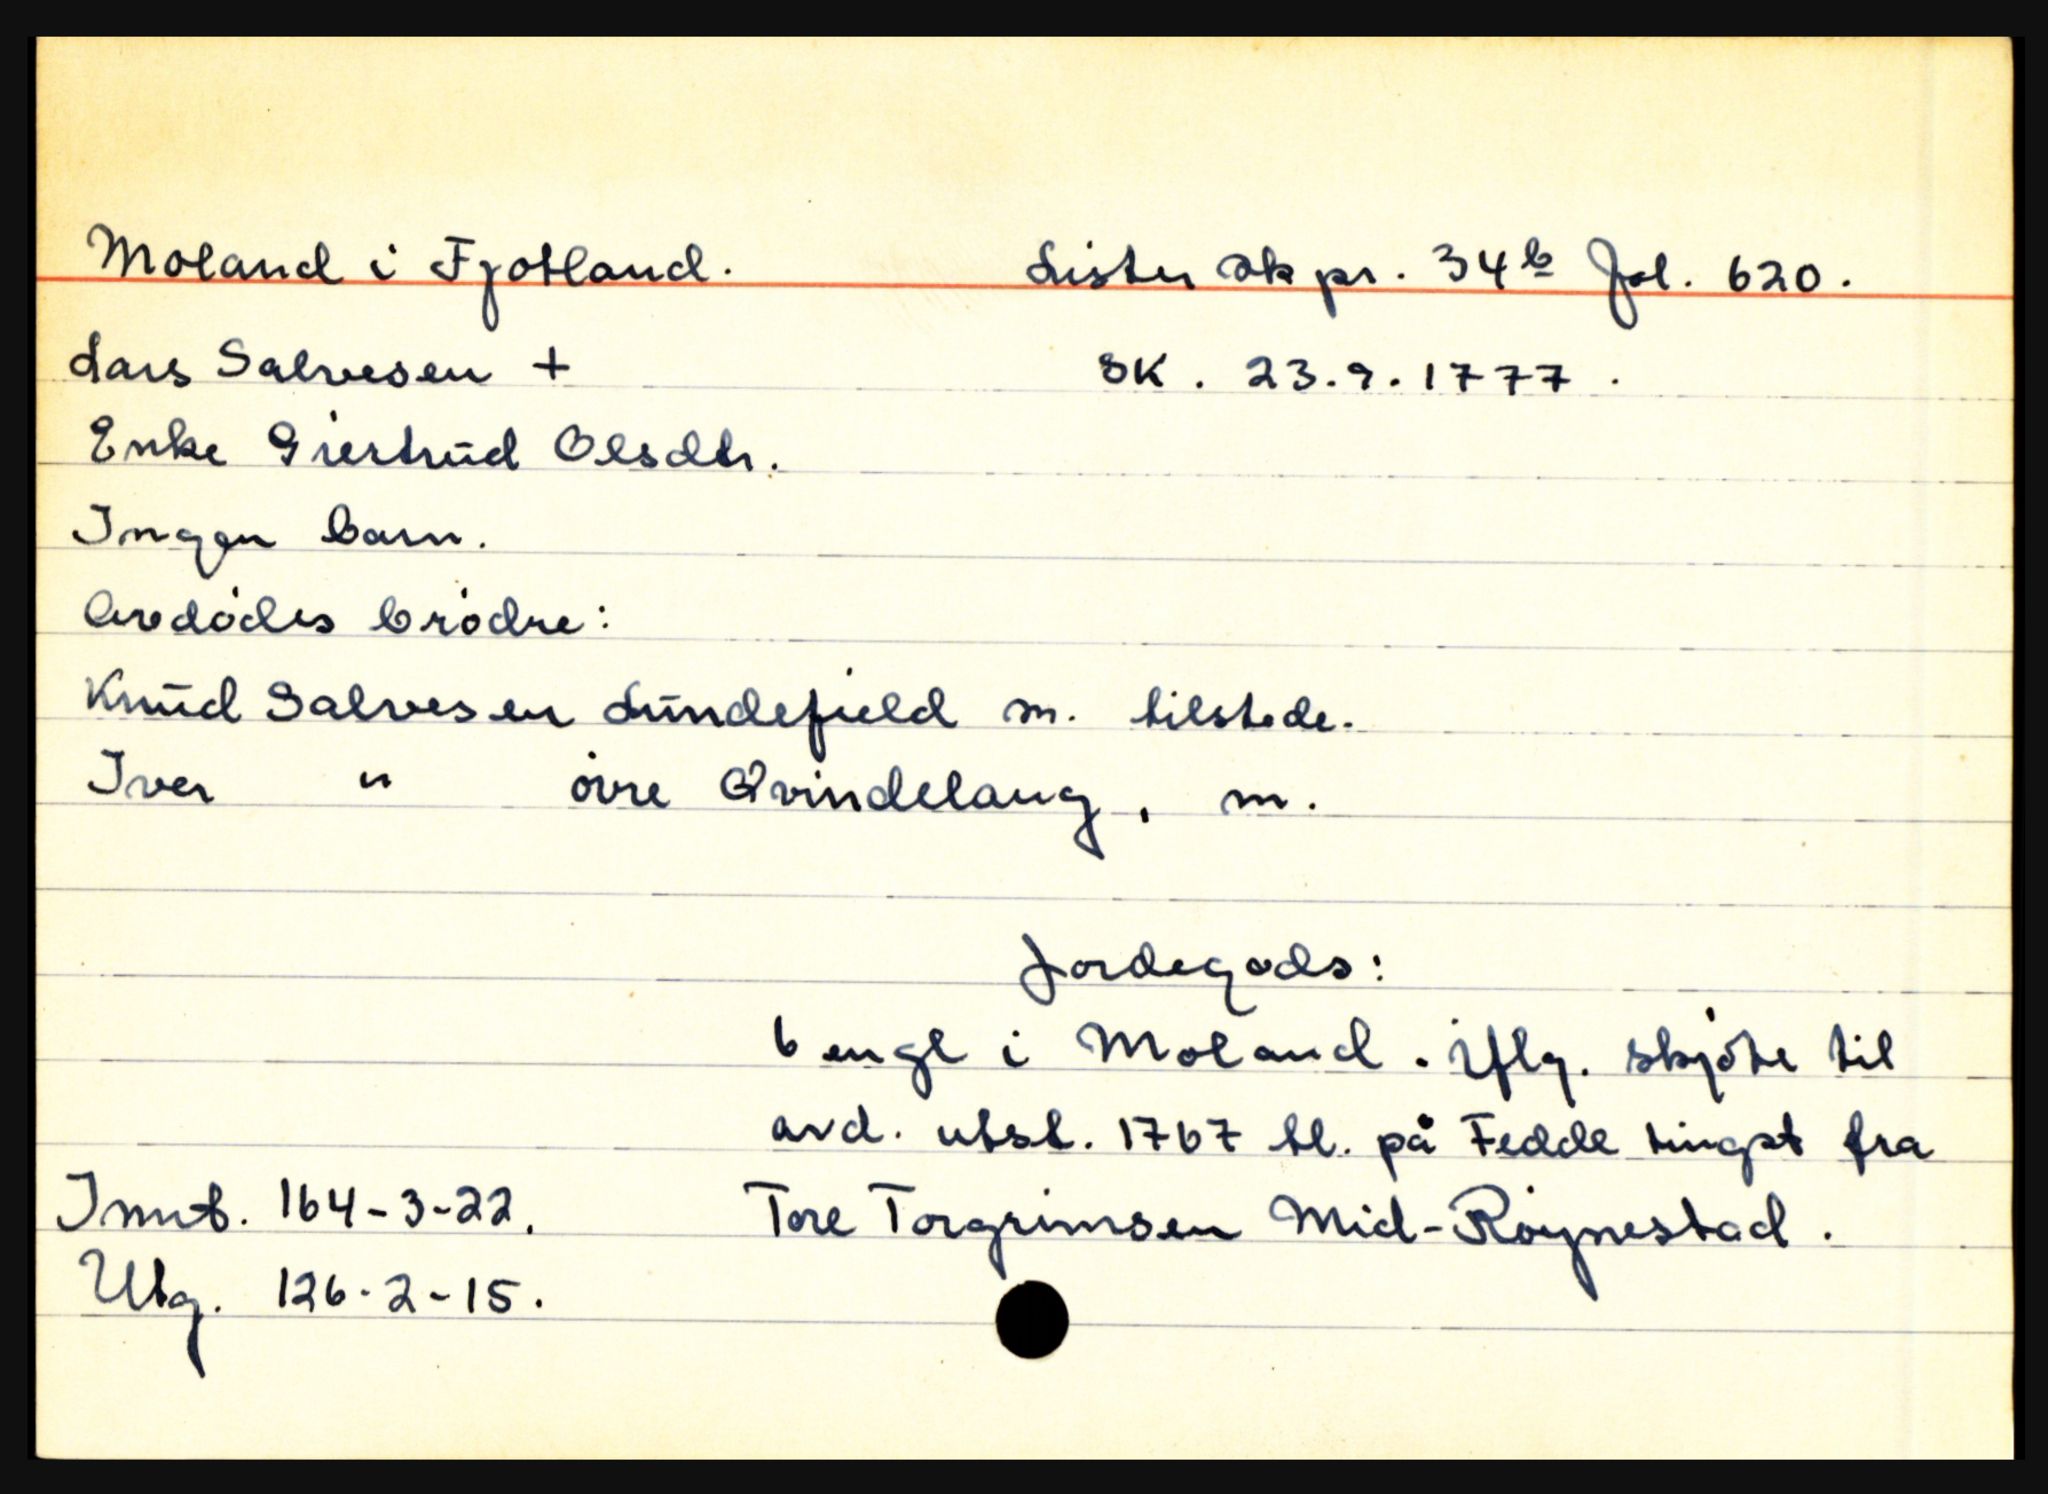 Moland i Fjotland. Lister skpr. 34b fol. 620.
Lars Salvesen + SK. 23.9.1777.
Enke Giertrud Olsdtr.
Ingen barn.
Avdødes brødre:
Knud Salvesen Lundefield m. tilstede.
Iver " øvre Qvindelaug, m.
Jordegods:
6 engl i Moland. Iflg. skjøte til
avd. utst. 1767 tl. på Fedde tingst fra
Innb. 164-3-22. Tore Torgrimsen Mid-Röynestad.
Utg. 126-2-15.